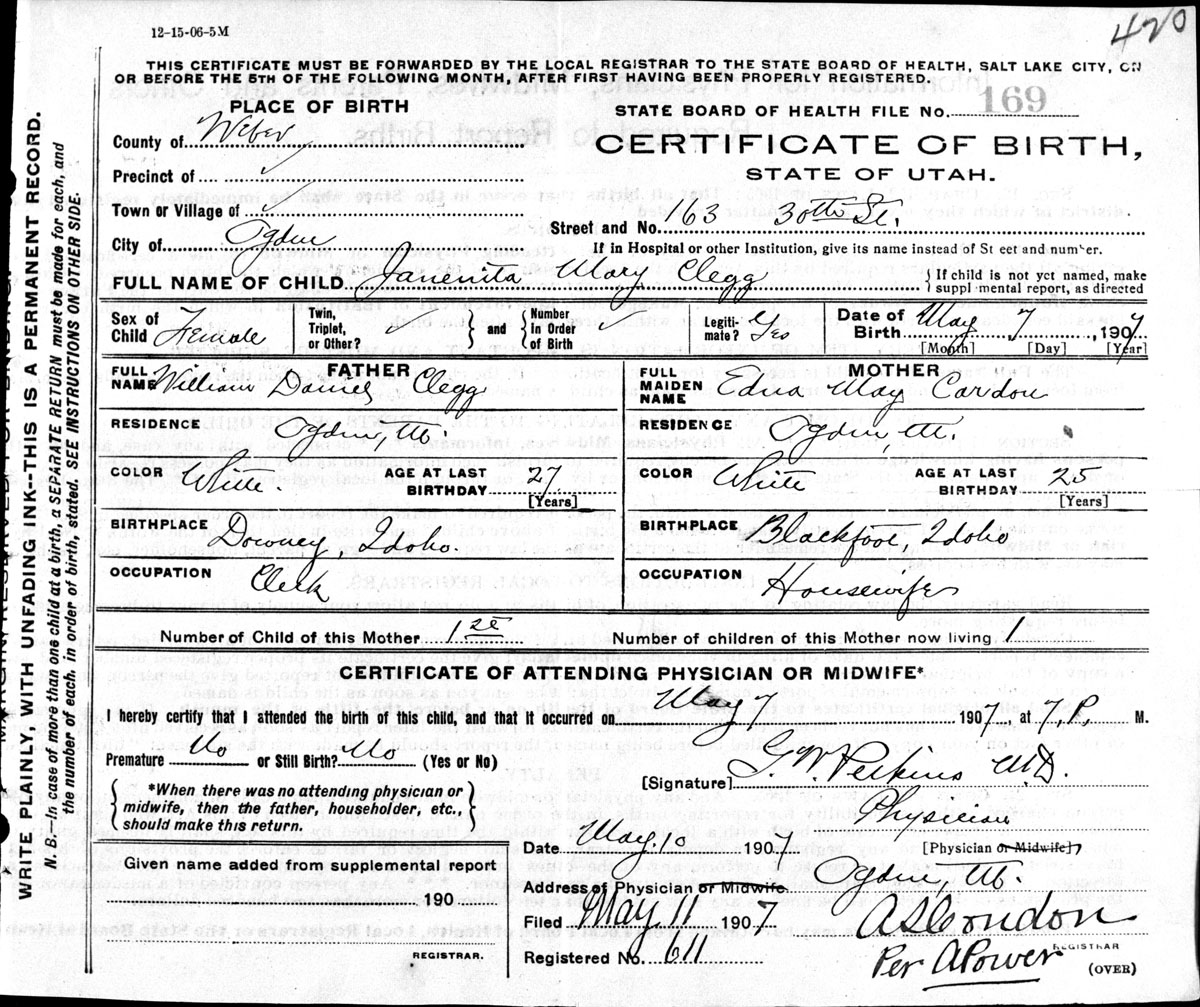 420
12-15-06-5M
THIS CERTIFICATE MUST BE FORWARDED BY THE LOCAL REGISTRAR TO THE STATE BOARD OF HEALTH, SALT LAKE CITY, ON
OR BEFORE THE 5TH OF THE FOLLOWING MONTH, AFTER FIRST HAVING BEEN PROPERLY REGISTERED.
PLACE OF BIRTH
STATE BOARD OF HEALTH FILE No. 169
County of Weber
CERTIFICATE OF BIRTH,
Precinct of ✓
STATE OF UTAH.
Town or Village of ✓
Street and No. 163 30th St.
City of Ogden
If in Hospital or other Institution, give its name instead of St eet and number.
FULL NAME OF CHILD Mary Clegg
{If child is not yet named, make suppl mental report, as directed
Sex of Child Female
Twin, Triplet, or Other? ✓ } and { Number In Order of Birth ✓
Legiti-mate? Yes
Date of Birth May 7, 1907
[Month] [Day] [Year]
FATHER
FULL NAME William Clegg
RESIDENCE Ogden, Ut.
COLOR White.
AGE AT LAST BIRTHDAY 27
[Years]
BIRTHPLACE Downey, Idaho.
OCCUPATION Clerk
MOTHER
FULL MAIDEN NAME Edna May Cardon
RESIDENCE Ogden, Ut.
COLOR White
AGE AT LAST BIRTHDAY 25
[Years]
BIRTHPLACE Blackfoot, Idaho
OCCUPATION Housewife
Number of Child of this Mother 1st
Number of children of this Mother now living 1
CERTIFICATE OF ATTENDING PHYSICIAN OR MIDWIFE*
I hereby certify that I attended the birth of this child, and that it occurred on May 7 1907, at 7, P, M.
Premature No or Still Birth? No (Yes or No)
[Signature] Perkins MD.
{*When there was no attending physician or
midwife, then the father, householder, etc.,
should make this return.}
Physician
Date May. 10 1907
[Physician or Midwife]
Given name added from supplemental report
190
REGISTRAR.
Address of Physician or Midwife. Ogden, Ut.
Filed May 11 1907
A S Condon
Registered No. 611
Per A Power
REGISTRAR
(OVER)
MARGIN RESERVED FOR BINDING.
WRITE PLAINLY, WITH UNFADING INK--THIS IS A PERMANENT RECORD.
N. B.--In case of more than one child at a birth, a SEPARATE RETURN must be made for each, and
the number of each, in order of birth, stated. SEE INSTRUCTIONS ON OTHER SIDE.